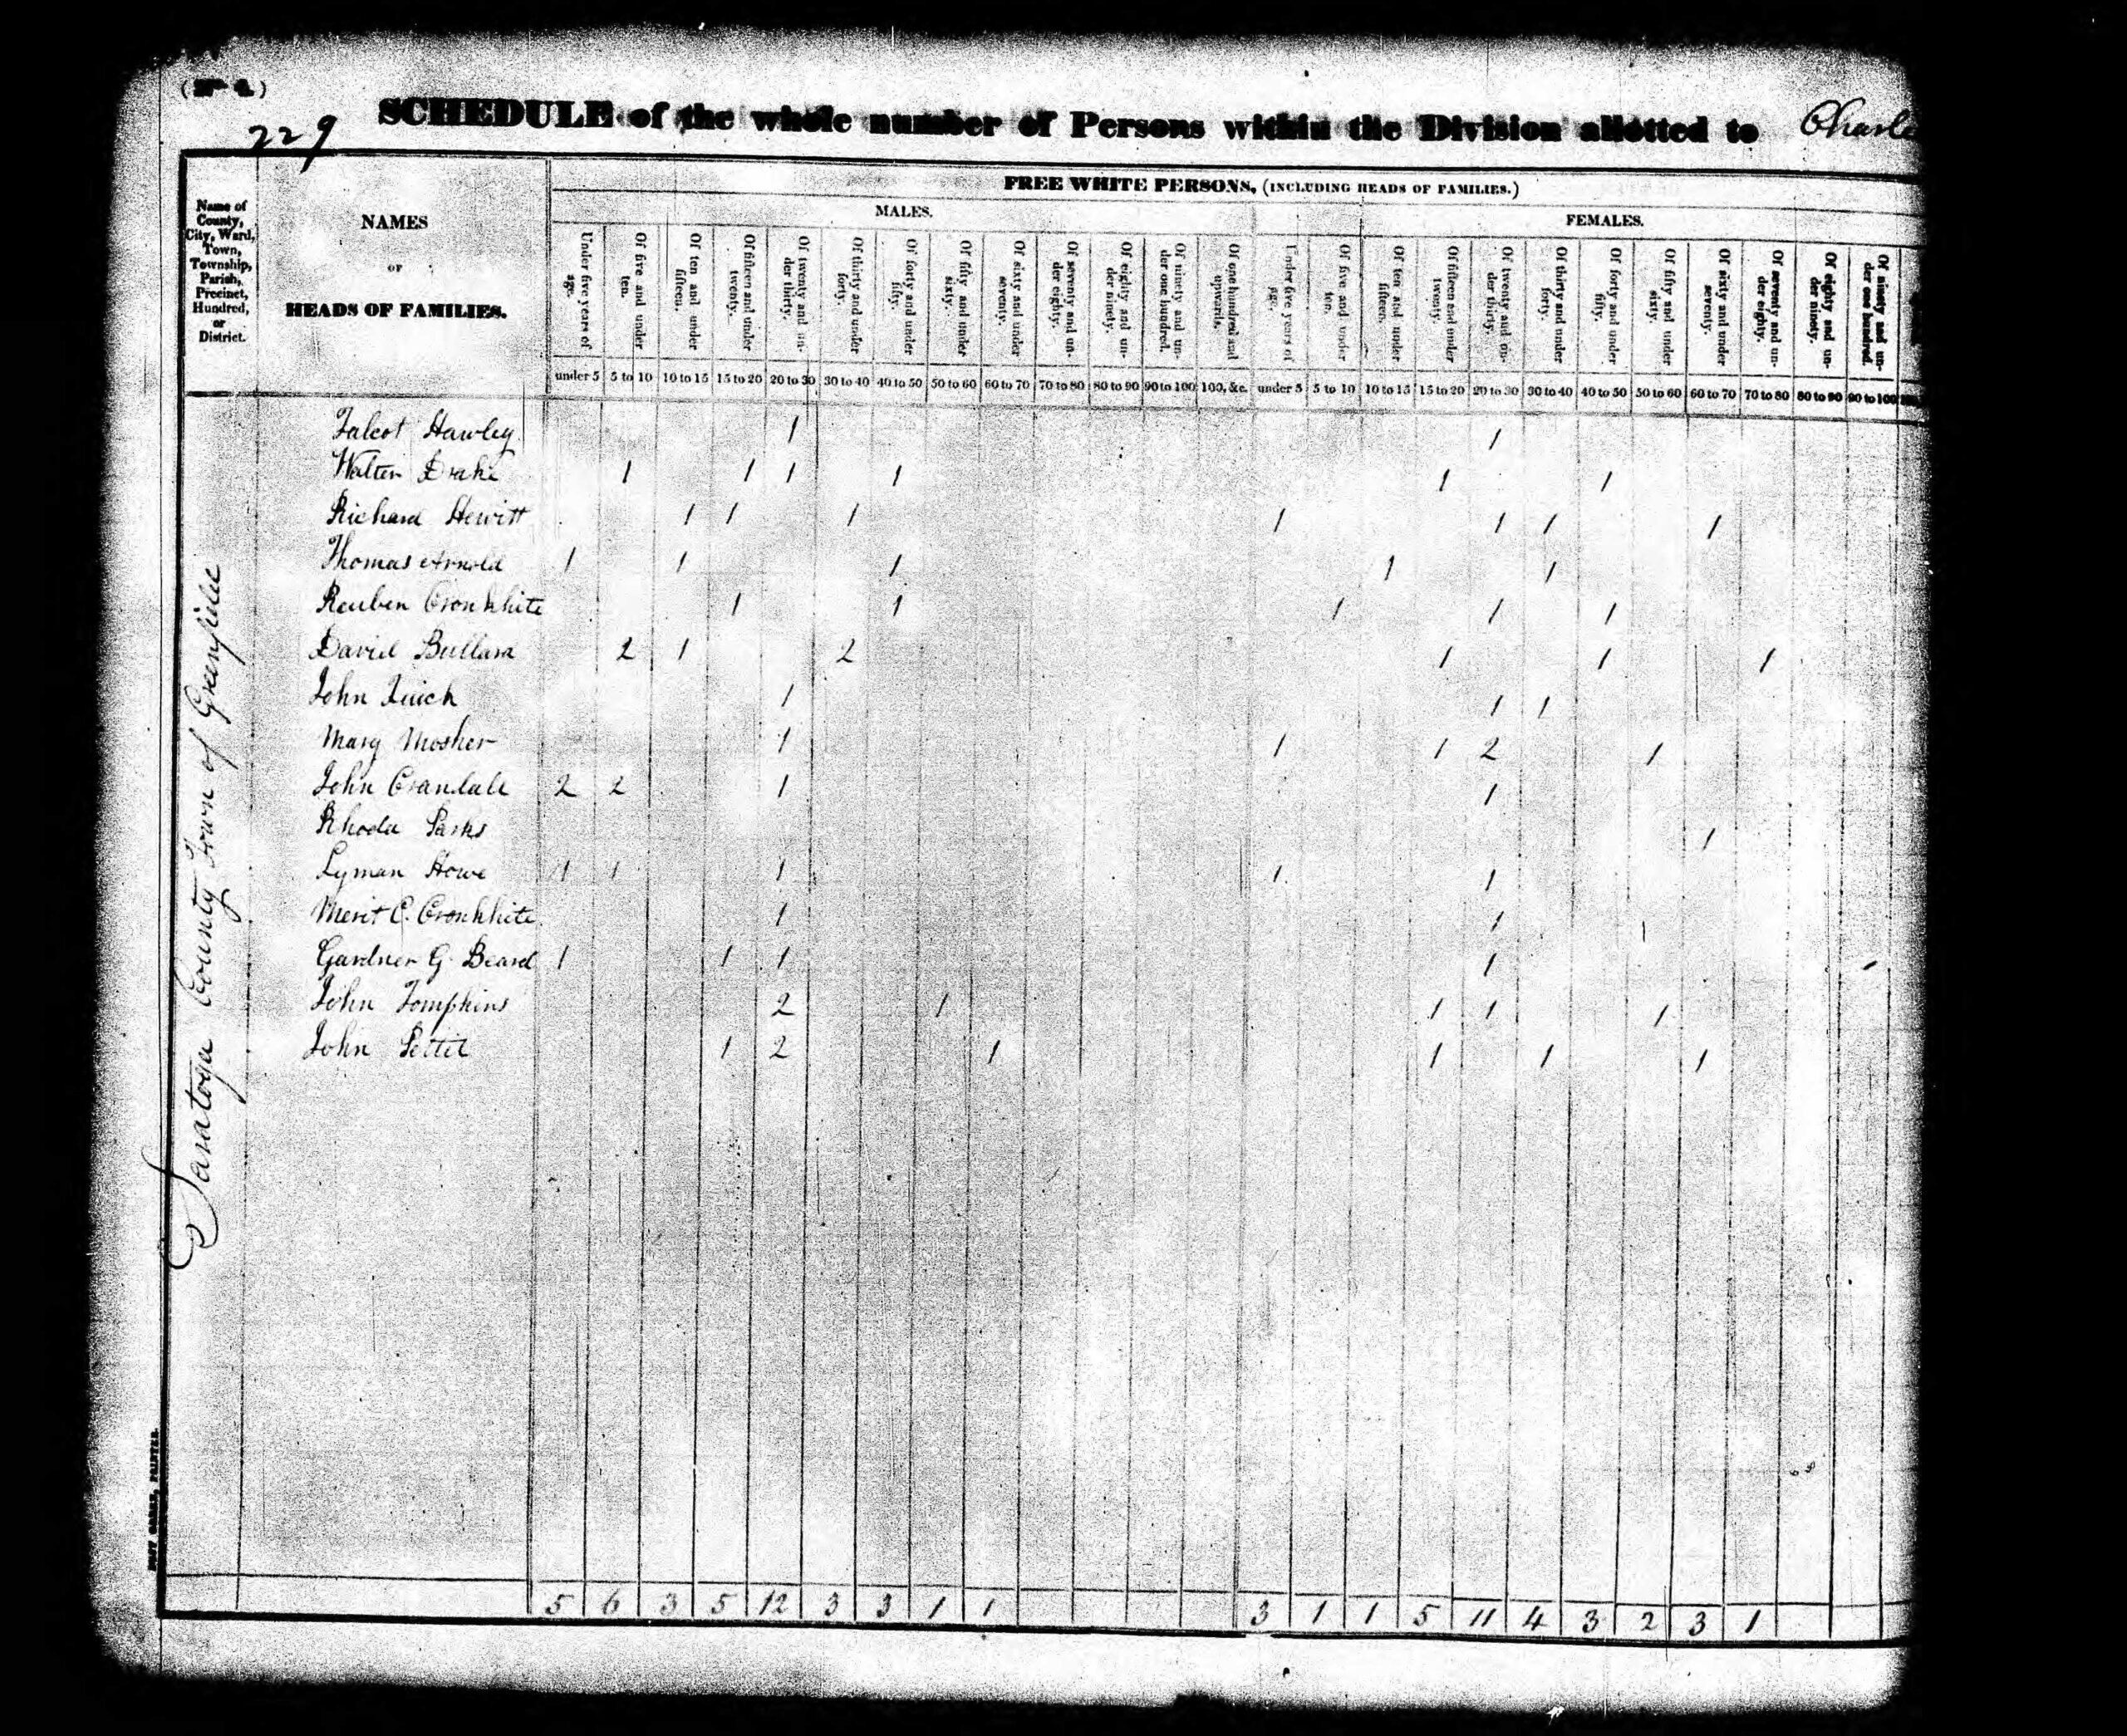 (No 4.)
229
SCHEDULE of the whole number of Persons within the Division allotted to Charle
FREE WHITE PERSONS, (INCLUDING HEADS OF FAMILIES.)
MALES. FEMALES.
Name of County, City, Ward, Town, Township, Parish, Precinct, Hundred, or District.
NAMES
OF
HEADS OF FAMILIES.
Under five years of age. Of five and under ten. Of ten and under fifteen. Of fifteen and under twenty. Of twenty and under thirty. Of thirty and under forty. Of forty and under fifty. Of fifty and under sixty. Of sixty and under seventy. Of seventy and under eighty. Of eighty and under ninety. Of ninety and under one hundred. Of one hundred and upwards. Under five years of age. Of five and under ten. Of ten and under fifteen. Of fifteen and under twenty. Of twenty and under thirty. Of thirty and under forty. Of forty and under fifty. Of fifty and under sixty. Of sixty and under seventy. Of seventy and under eighty. Of eighty and under ninety. Of ninety and under one hundred.
under 5 5 to 10 10 to 15 15 to 20 20 to 30 30 to 40 40 to 50 50 to 60 60 to 70 70 to 80 80 to 90 90 to 100 100, &c. under 5 5 to 10 10 to 15 15 to 20 20 to 30 30 to 40 40 to 50 50 to 60 60 to 70 70 to 80 80 to 90 90 to 100
Saratoga County Town of Greenfield
Talcot Hawley 1 1
Walter Drake 1 1 1 1 1 1
Richard Hewitt 1 1 1 1 1 1 1
Thomas Arnold 1 1 1 1 1
Reuben Cronkhite 1 1 1 1 1
David Bullard 2 1 2 1 1 1
John 1 1 1
Mary Mosher 1 1 1 2 1
John Crandall 2 2 1 1
Rhoda Parks 1
Lyman Howe 1 1 1 1 1
Merit C. Cronkhite 1 1
Gardner G. Beard 1 1 1 1
John Tompkins 2 1 1 1 1
John Pettit 1 2 1 1 1 1
5 6 3 5 12 3 3 1 1 3 1 1 5 11 4 3 2 3 1